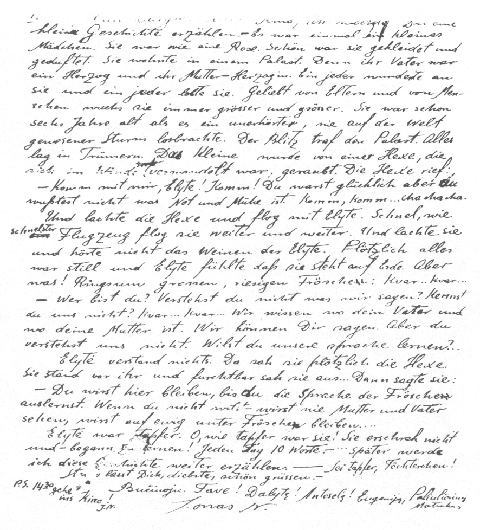 kleine Geschichte erzählen. – Es war einmal ein kleines
Mädchen. Sie war wie eine Rose. Schön war sie gekleidet und
geduftet. Sie wohnte in einem Palast. Denn ihr Vater war
ein Herzog und ihr Mutter – Herzogin. Ein jeder wunderte an
sie und ein jeder lobte sie. Geliebt von Eltern und von Men-
schen wuchs sie immer grösser und gröser. Sie war schon
sechs Jahre alt als es ein unerhörter, nie auf der Welt
gewesener Sturm losbrachte. Der Blitz traf den Palast. Alles
lag in Trümern. Das Kleine wurde von einer Hexe, die
sich im verwandelt war, geraubt. Die Hexe rief:
– Komm mit mir, Elyte! Komm! Du warst glücklich aber du
wußtest nicht was Not und Mühe ist. Komm, komm... cha chacha.
Und lachte die Hexe und flog mit Elyte. Schnel, wie
schnelster Flugzeug flog sie weiter und weiter. Und lachte sie
und hörte nicht das Weinen der Elyte. Plötzlich alles
war still und Elyte fühlte daß sie steht auf Erde. Aber
was! Ringsum grossen, riesigen Fröschen: Kvar... Kvar...
– Wer bist du? Verstehst du nicht was wir sagen? Kennst
du uns nicht? Kvar... Kvar... Wir wissen wo dein Vater und
wo deine Mutter ist. Wir können Dir sagen. Aber du
verstehst uns nicht. Wilst du unsere sprache lernen?..
Elyte verstand nichts. Da sah sie plötzlich die Hexe.
Sie stand vor ihr und furchtbar sah sie aus... Dann sagte sie:
– Du wirst hier bleiben, bis du die Sprache der Fröschen
auslernst. Wenn du nicht wirst nie Mutter und Vater
sehen, wirst auf ewig unter Fröschen bleiben...
Elyte war tapfer. O, wie tapfer war sie! Sie erschrak nicht
und begann zu lernen! Jeden Tag 10 Wörter... Später werde
ich diese Geschichte weiter erzählen. — Sei tapfer, Töchterchen!
lässt Dich, dichster, schön grüssen. –
P.S. 14 30 gehe
ins Kino!
J.N.
Bučiuoju Tave!
Jonas N